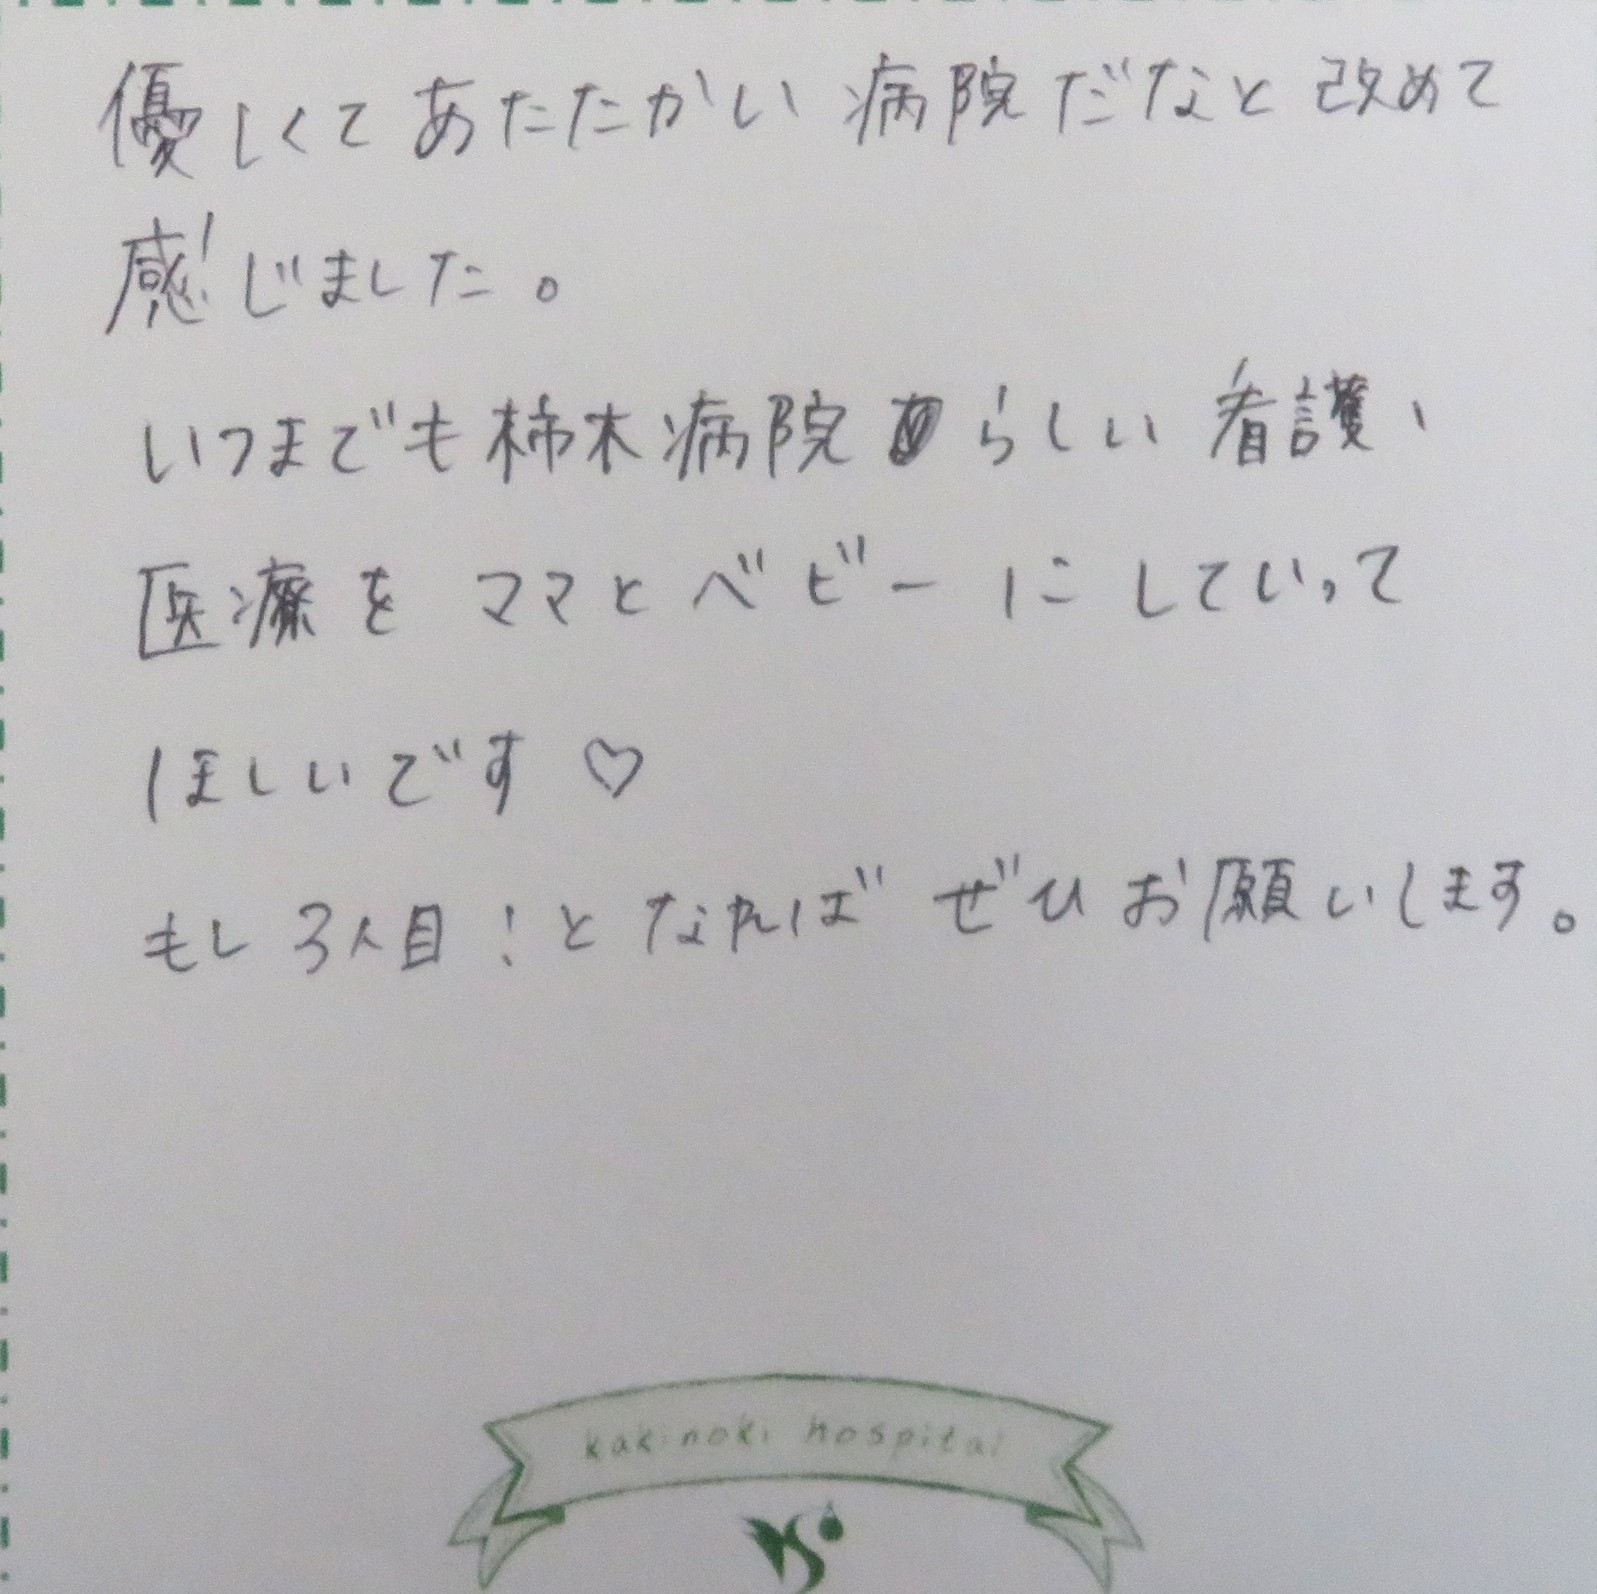 優しくてあたたかい病院だなと改めて
感じました。
いつまでも柿木病院らしい看護、
医療をママとベビーにしていって
ほしいです♡
もし3人目!となればぜひお願いします。
kakinoki hospital